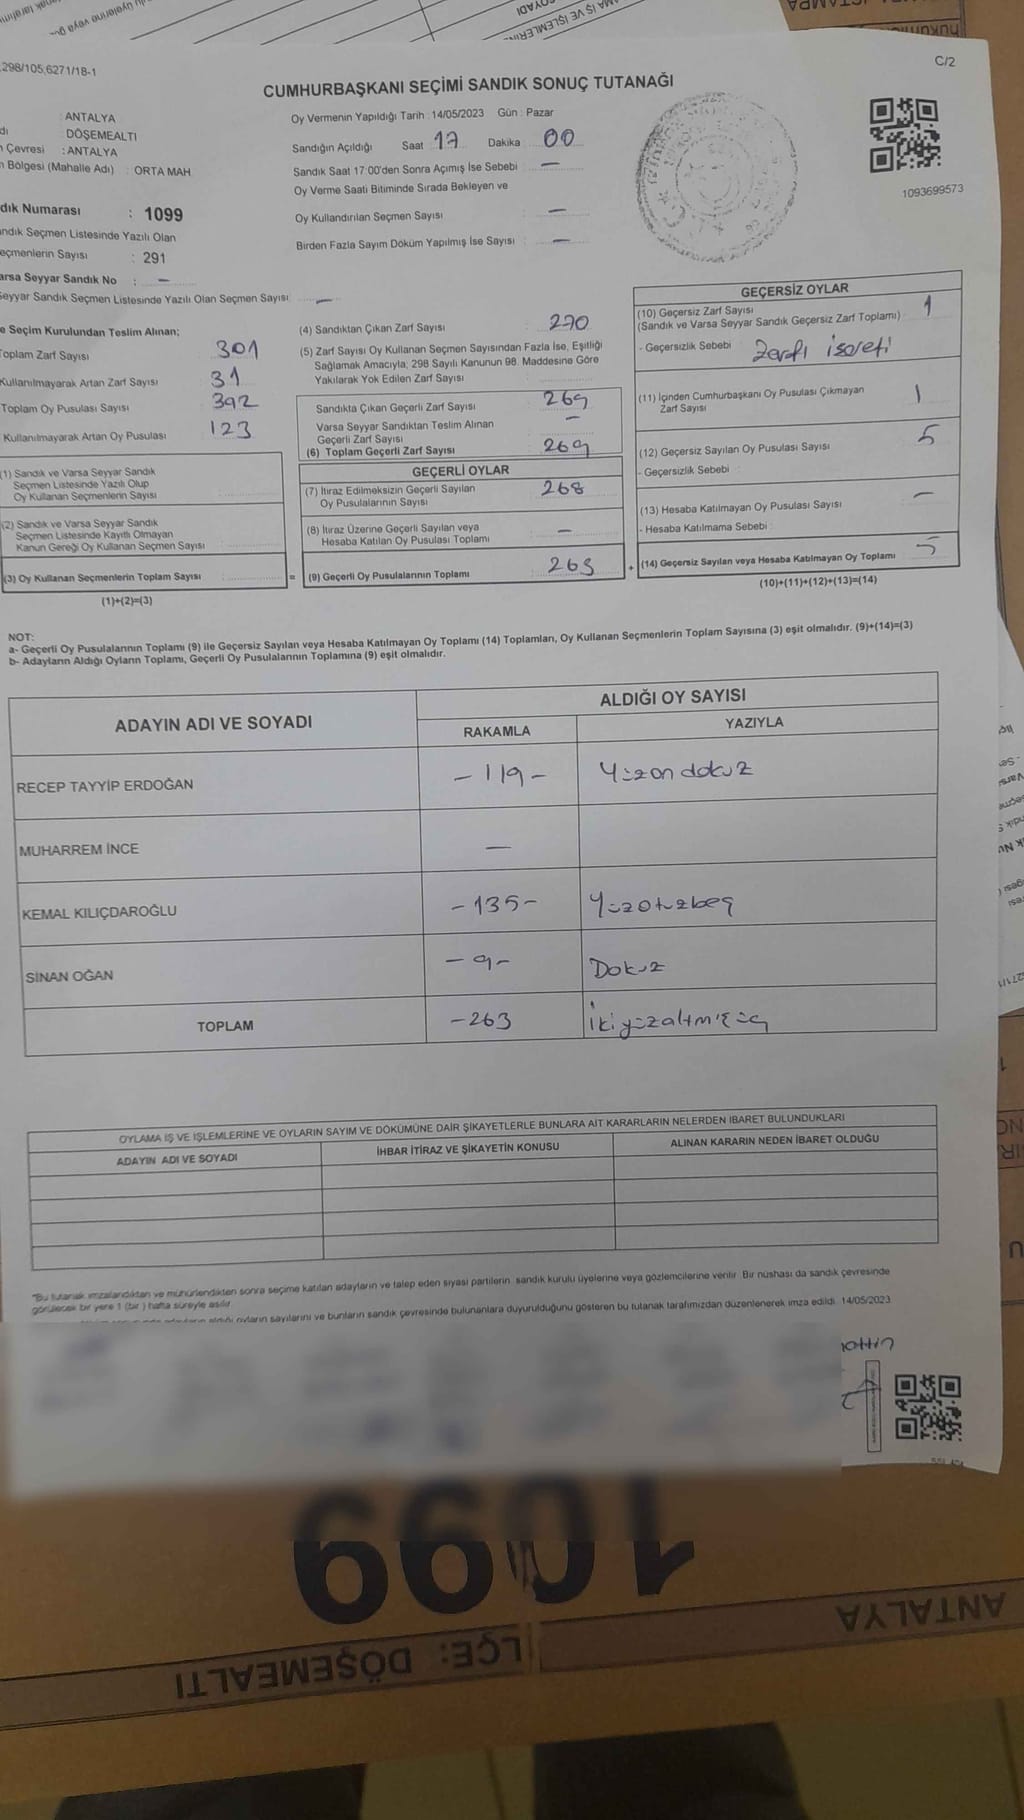 298/105,6271/18-1
C/2
CUMHURBAŞKANI SEÇİMİ SANDIK SONUÇ TUTANAĞI
: ANTALYA
: DÖŞEMEALTI
Çevresi : ANTALYA
Bölgesi (Mahalle Adı) : ORTA MAH.
Oy Vermenin Yapıldığı Tarih : 14/05/2023 Gün : Pazar
Sandığın Açıldığı Saat 17 Dakika 00
Sandık Saat 17:00'den Sonra Açımış İse Sebebi : —
Oy Verme Saati Bitiminde Sırada Bekleyen ve
Oy Kullandırılan Seçmen Sayısı : —
Birden Fazla Sayım Döküm Yapılmış İse Sayısı : —
1093699573
Numarası : 1099
Seçmen Listesinde Yazılı Olan
Sayısı : 291
Seyyar Sandık No : —
Seyyar Sandık Seçmen Listesinde Yazılı Olan Seçmen Sayısı: —
Seçim Kurulundan Teslim Alınan;
Toplam Zarf Sayısı 301
Kullanılmayarak Artan Zarf Sayısı 31
Toplam Oy Pusulası Sayısı 392
Kullanılmayarak Artan Oy Pusulası 123
(1) Sandık ve Varsa Seyyar Sandık
Seçmen Listesinde Yazılı Olup
Oy Kullanan Seçmenlerin Sayısı
(2) Sandık ve Varsa Seyyar Sandık
Seçmen Listesinde Kayıtlı Olmayan
Kanun Gereği Oy Kullanan Seçmen Sayısı
(3) Oy Kullanan Seçmenlerin Toplam Sayısı :
(1)+(2)=(3)
(4) Sandıktan Çıkan Zarf Sayısı 270
(5) Zarf Sayısı Oy Kullanan Seçmen Sayısından Fazla İse, Eşitliği
Sağlamak Amacıyla, 298 Sayılı Kanunun 98. Maddesine Göre
Yakılarak Yok Edilen Zarf Sayısı
Sandıkta Çıkan Geçerli Zarf Sayısı 269
Varsa Seyyar Sandıktan Teslim Alınan —
Geçerli Zarf Sayısı
(6) Toplam Geçerli Zarf Sayısı 269
GEÇERLİ OYLAR
(7) İtiraz Edilmeksizin Geçerli Sayılan 268
Oy Pusulalarının Sayısı
(8) İtiraz Üzerine Geçerli Sayılan veya —
Hesaba Katılan Oy Pusulası Toplamı
= (9) Geçerli Oy Pusulalarının Toplamı : 263
GEÇERSİZ OYLAR
(10) Geçersiz Zarf Sayısı 1
(Sandık ve Varsa Seyyar Sandık Geçersiz Zarf Toplamı)
- Geçersizlik Sebebi
(11) İçinden Cumhurbaşkanı Oy Pusulası Çıkmayan 1
Zarf Sayısı
(12) Geçersiz Sayılan Oy Pusulası Sayısı 5
- Geçersizlik Sebebi
(13) Hesaba Katılmayan Oy Pusulası Sayısı —
- Hesaba Katılmama Sebebi
+ (14) Geçersiz Sayılan veya Hesaba Katılmayan Oy Toplamı 5
(10)+(11)+(12)+(13)=(14)
NOT:
a- Geçerli Oy Pusulalarının Toplamı (9) ile Geçersiz Sayılan veya Hesaba Katılmayan Oy Toplamı (14) Toplamları, Oy Kullanan Seçmenlerin Toplam Sayısına (3) eşit olmalıdır. (9)+(14)=(3)
b- Adayların Aldığı Oyların Toplamı, Geçerli Oy Pusulalarının Toplamına (9) eşit olmalıdır.
ADAYIN ADI VE SOYADI
ALDIĞI OY SAYISI
RAKAMLA YAZIYLA
RECEP TAYYİP ERDOĞAN - 119 - Yüzondokuz
MUHARREM İNCE —
KEMAL KILIÇDAROĞLU - 135 - Yüzotuzbeş
SİNAN OĞAN - 9 - Dokuz
TOPLAM - 263 İkiyüzaltmışüç
OYLAMA İŞ VE İŞLEMLERİNE VE OYLARIN SAYIM VE DÖKÜMÜNE DAİR ŞİKAYETLERLE BUNLARA AİT KARARLARIN NELERDEN İBARET BULUNDUKLARI
ADAYIN ADI VE SOYADI İHBAR İTİRAZ VE ŞİKAYETİN KONUSU ALINAN KARARIN NEDEN İBARET OLDUĞU
"Bu tutanak imzalandıktan ve mühürlendikten sonra seçime katılan adayların ve talep eden siyasi partilerin sandık kurulu üyelerine veya gözlemcilerine verilir. Bir nüshası da sandık çevresinde
görülecek bir yere 1 (bir) hafta süreyle asılır.
aldığı oyların sayılarını ve bunların sandık çevresinde bulunanlara duyurulduğunu gösteren bu tutanak tarafımızdan düzenlenerek imza edildi. 14/05/2023
1099
İLÇE: DÖŞEMEALTI
ANTALYA